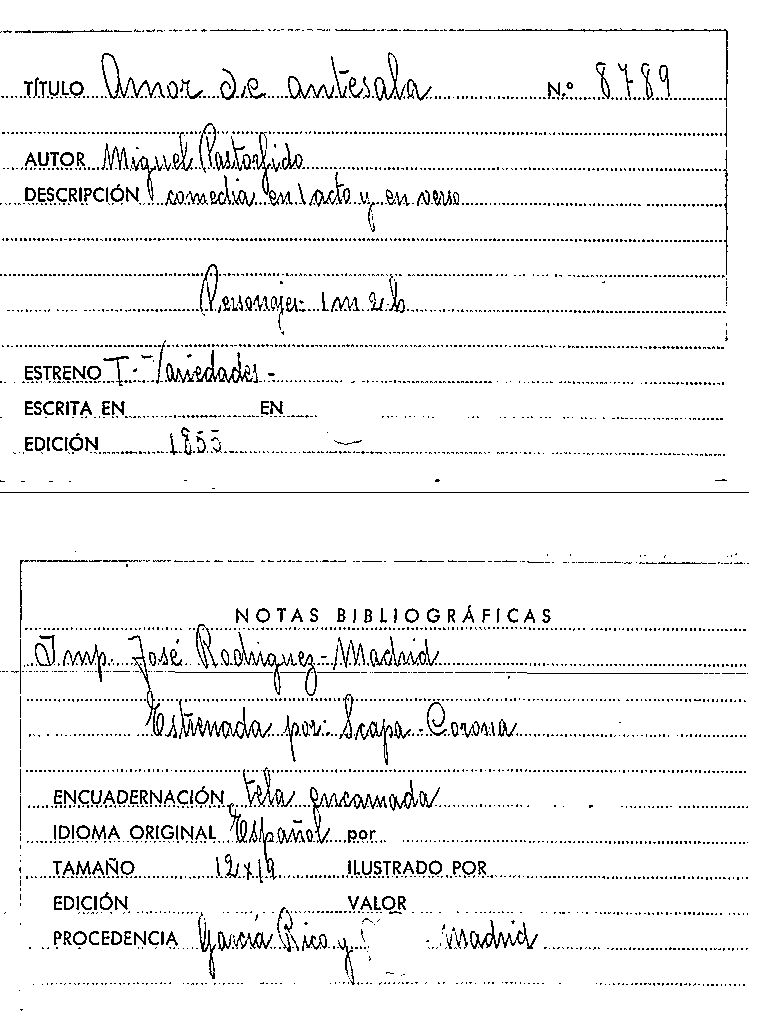 TÍTULO Amor de antesala N.º 8789
AUTOR Miguel Pastorfido
DESCRIPCIÓN comedia en 1 acto y en verso
Personajes: 1 m 2 h
ESTRENO T. Variedades -
ESCRITA EN EN
EDICIÓN 1855
NOTAS BIBLIOGRÁFICAS
Imp. José Rodriguez - Madrid
Estrenada por: Scapa - Corona
ENCUADERNACIÓN tela encarnada
IDIOMA ORIGINAL Español por
TAMAÑO 12x19 ILUSTRADO POR
EDICIÓN VALOR
PROCEDENCIA García Rico y - Madrid